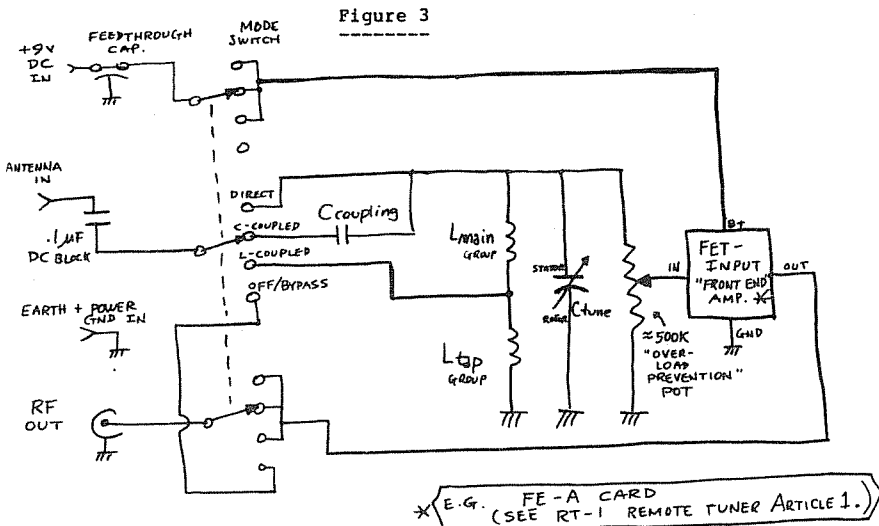 Figure 3
+9V
DC
IN
FEEDTHROUGH
CAP.
MODE
SWITCH
ANTENNA
IN
.1µF
DC BLOCK
DIRECT
C-COUPLED
L-COUPLED
OFF/BYPASS
Ccoupling
Lmain
GROUP
Ltap
GROUP
STATOR
ROTOR
Ctune
≈500K
"OVER-
LOAD
PREVENTION"
POT
B+
IN
FET-
INPUT
"FRONT END"
AMP. *
OUT
GND
EARTH + POWER
GND IN
RF
OUT
* E.G. FE-A CARD
(SEE RT-1 REMOTE TUNER ARTICLE 1.)